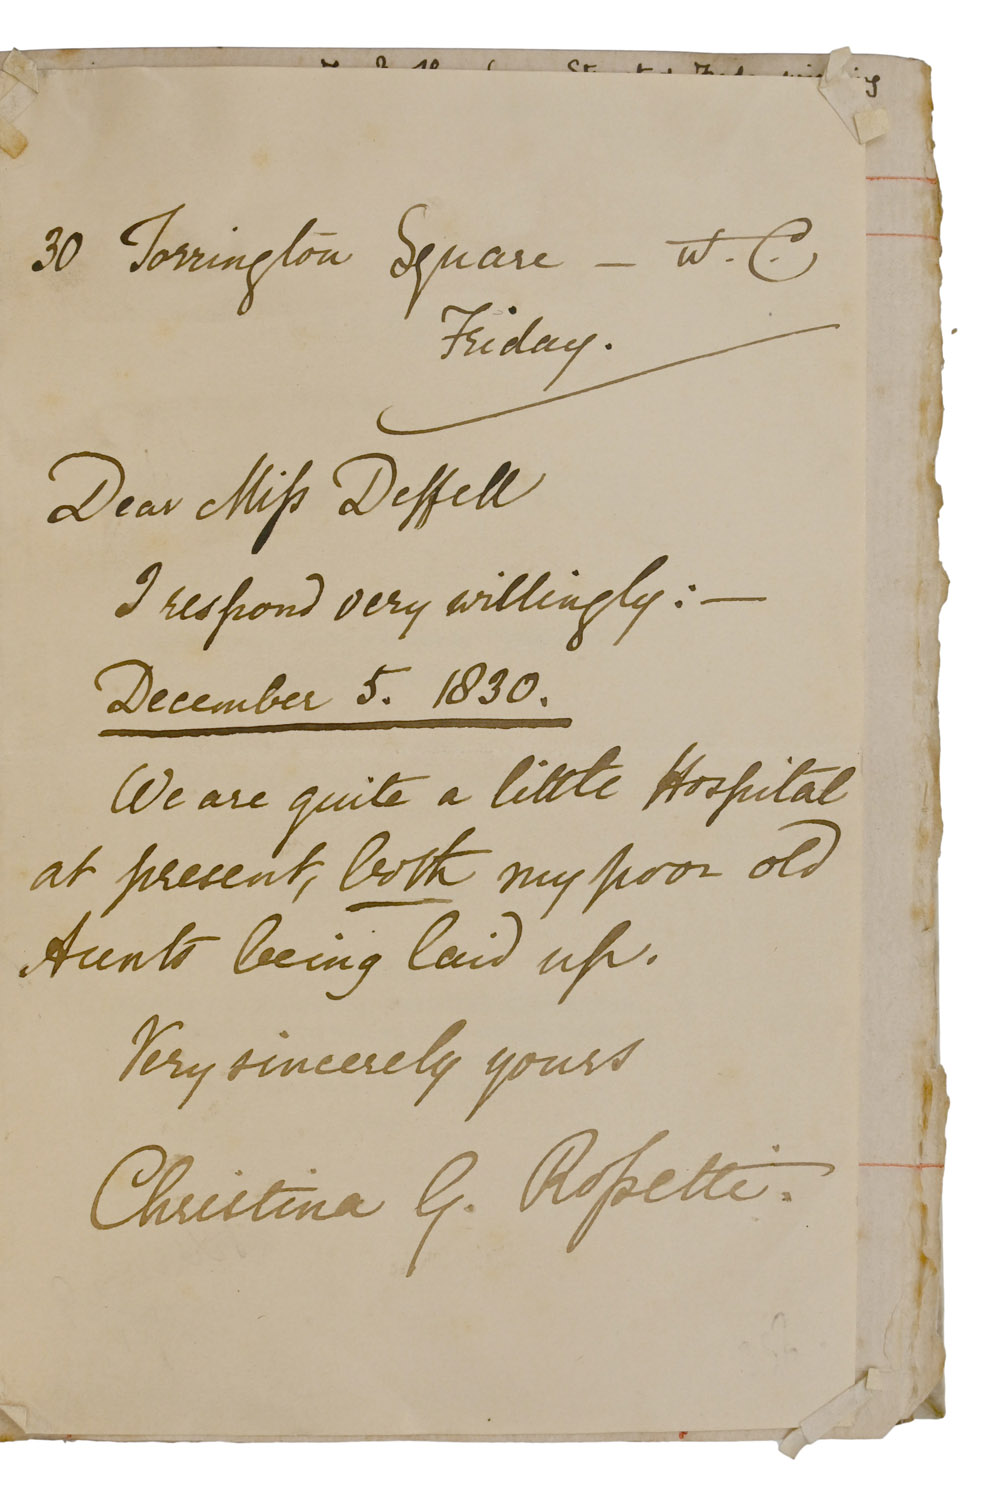 30 Torrington Square – W.C.
Friday.
Dear Miss Deffell
I respond very willingly: —
December 5. 1830.
We are quite a little Hospital
at present, both my poor old
Aunts being laid up.
Very sincerely yours
Christina G. Rossetti.